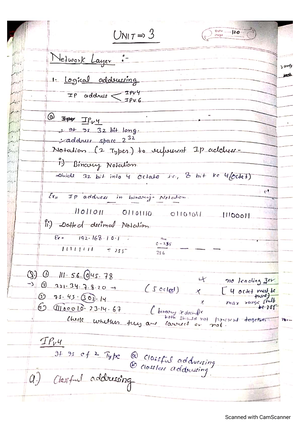 UNIT ⇒ 3
Network Layer :-
1. Logical addressing
IP address < IPv4
IPv6
IPv4
It is 32 bit long.
address space 2^32
Notation (2 Types) to represent IP address-
i) Binary Notation
divide 32 bit into 4 Octets i.e, 8 bit to 4 (Octet)
Ex:- IP address in binary Notation
11011011 01101110 01101011 11100011
ii) Dotted decimal Notation
Ex:- 192.168.10.1
11111111 = 255
111.56.045.78
no leading zero
221.34.7.8.20 → (5 octet)
[4 octet must be
75.45.301.14
max range
be 255
11100010.23.14.67
Check whether they are correct or not.
IPv4
It is of 2 Type
classful addressing
classless addressing
a) Classful addressing
Scanned with CamScanner